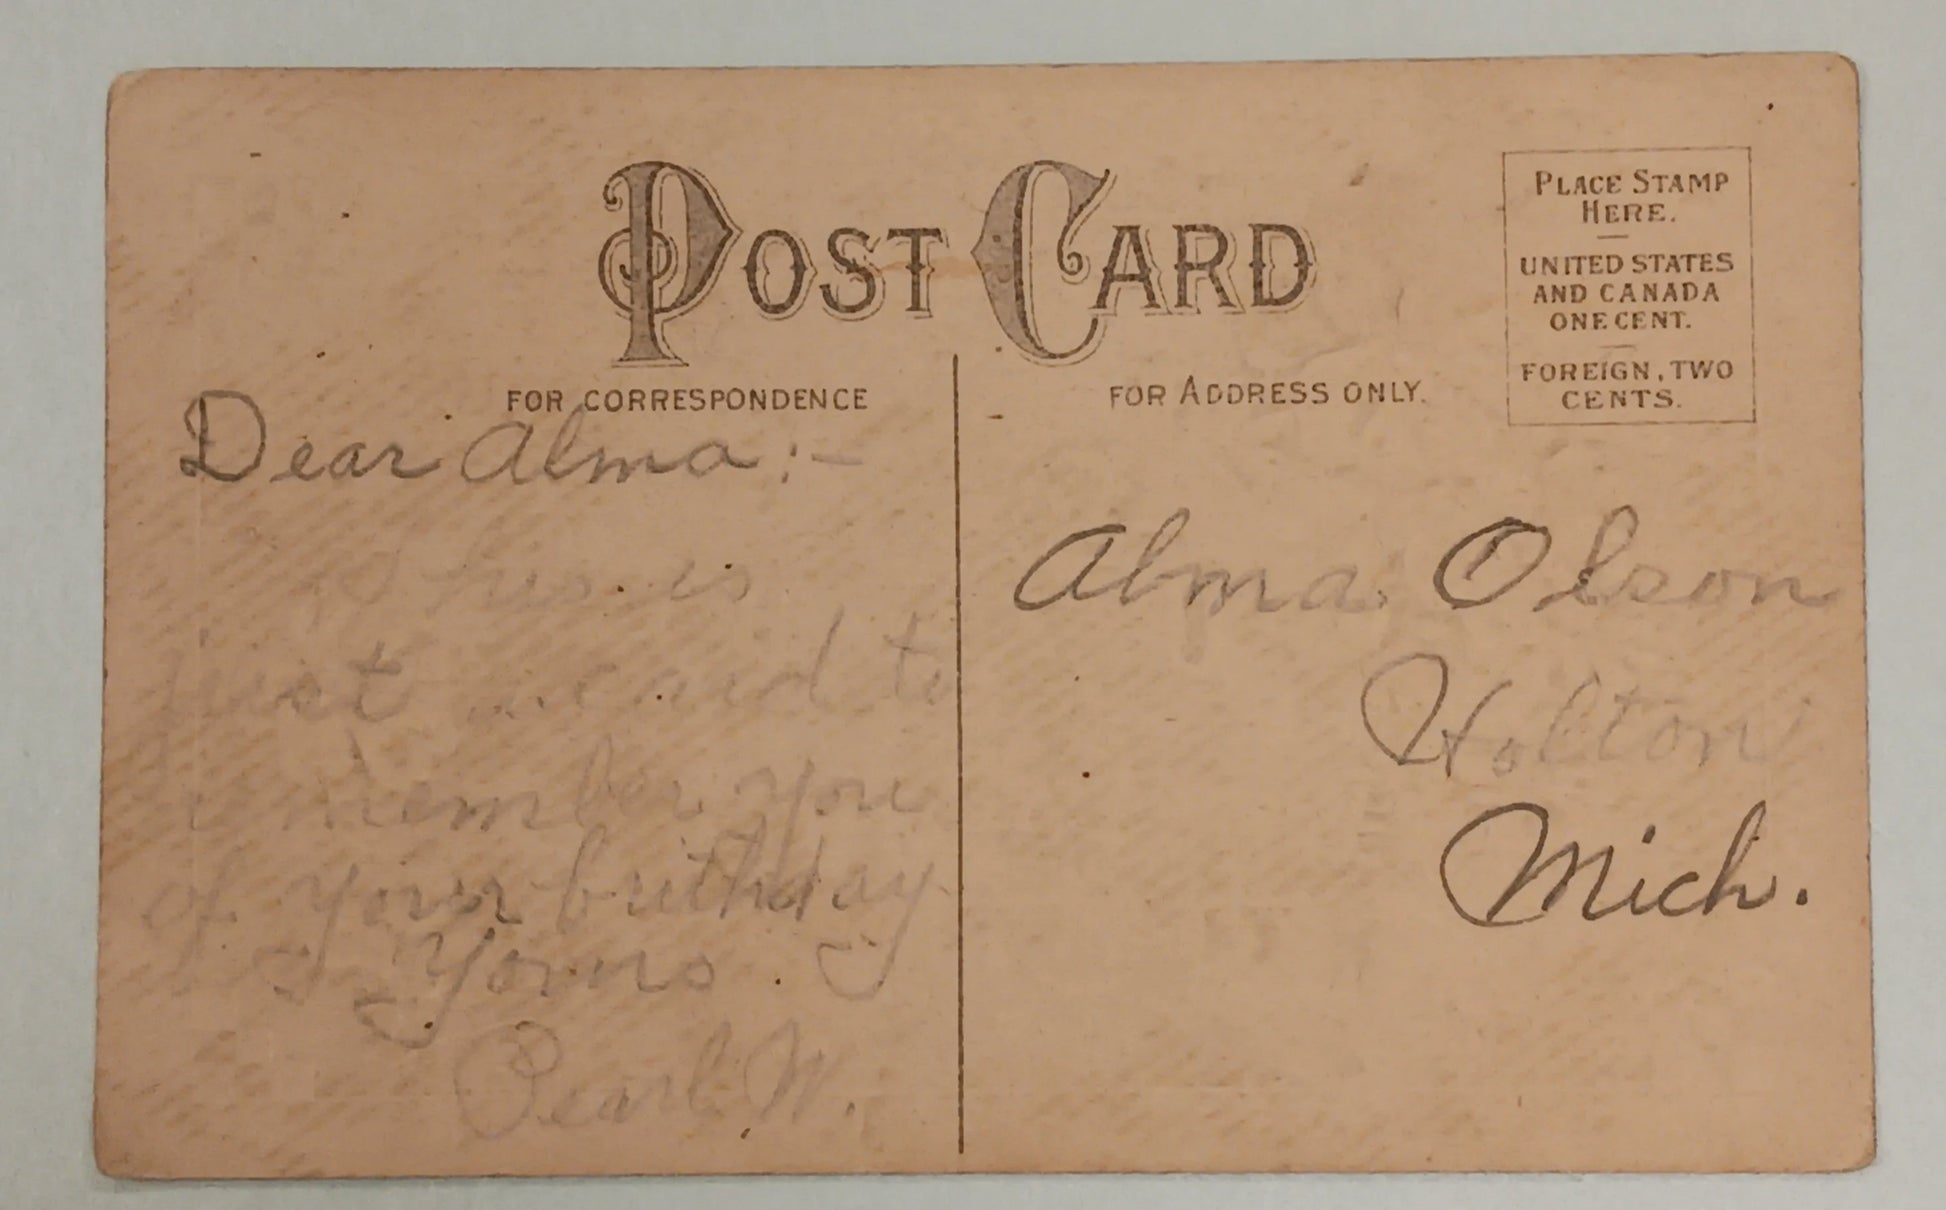 POST CARD
PLACE STAMP
HERE.
UNITED STATES
AND CANADA
ONE CENT.
FOREIGN, TWO
CENTS.
FOR CORRESPONDENCE
Dear Alma:-
This is
just a card to
remember you
of your birthday
Yours.
Pearl W.
FOR ADDRESS ONLY.
Alma Olson
Holton
Mich.